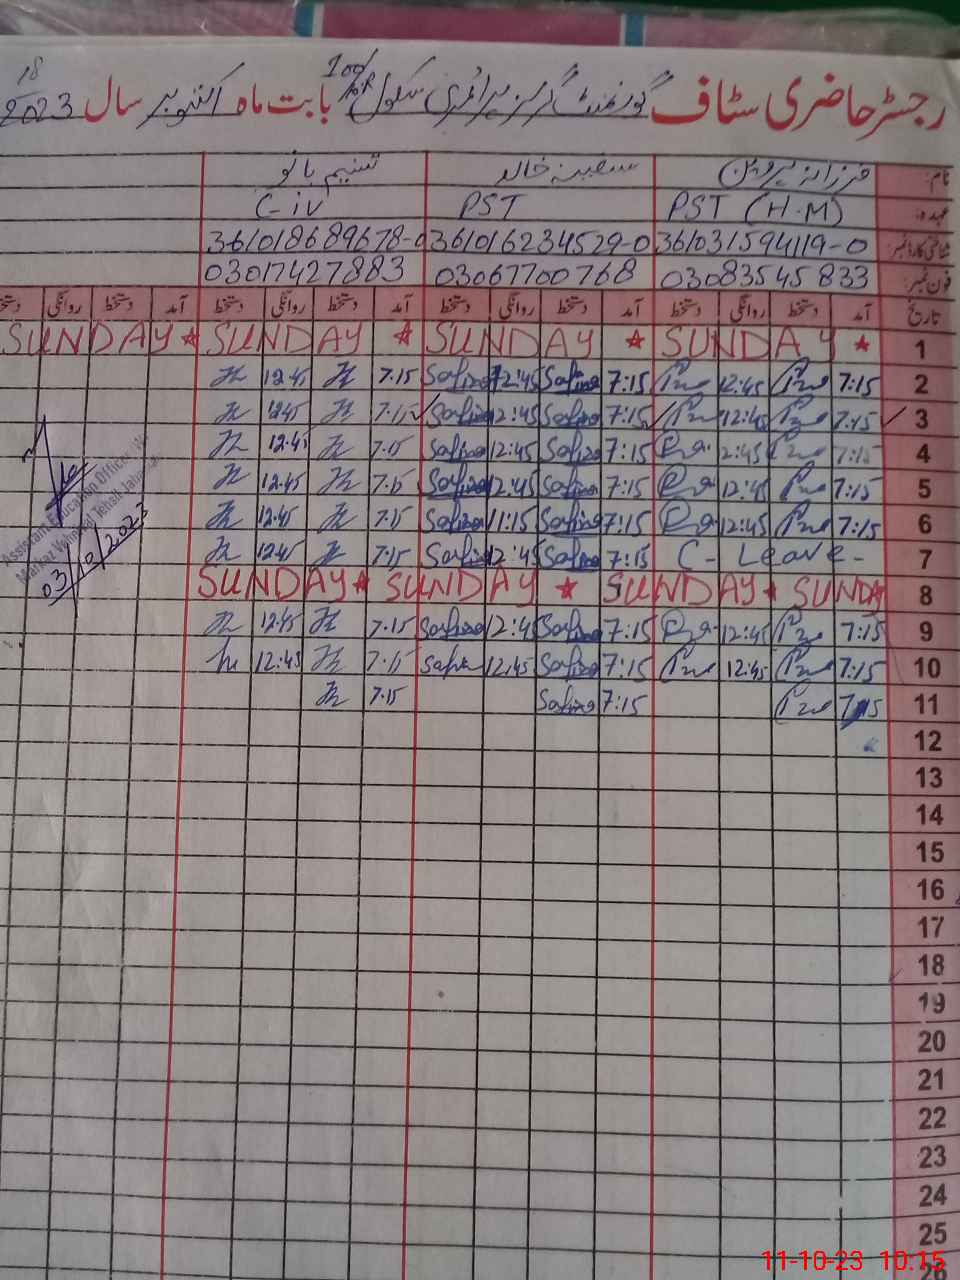 رجسٹر حاضری سٹاف گورنمنٹ گرلز پرائمری سکول 100/ بابت ماہ اکتوبر سال 2023
18
نام: فرزانہ پروین سفینہ خالد تسنیم بانو
عہدہ: PST (H.M) PST C-iv
شناختی کارڈ نمبر: 361031594119-0 361016234529-0 361018689678-0
فون نمبر: 03083545833 03067700768 03017427883
تاریخ آمد دستخط روانگی دستخط آمد دستخط روانگی دستخط آمد دستخط روانگی دستخط آمد دستخط روانگی دستخط
1 SUNDAY ★ SUNDAY ★ SUNDAY ★ SUNDAY ★
2 7:15 12:45 7:15 Safina 12:45 Safina 7.15 12.45
3 7:15 12:45 7:15 Safina 12:45 Safina 7.15 12.45
4 7:15 2:45 7:15 Safina 12:45 Safina 7.15 12.45
5 7:15 12:45 7:15 Safina 12:45 Safina 7.15 12.45
6 7:15 12:45 7:15 Safina 11:15 Safina 7.15 12.45
7 C- Leave- 7:15 Safina 12:45 Safina 7.15 12.45
8 SUNDAY ★ SUNDAY ★ SUNDAY ★ SUNDAY
9 7:15 12:45 7:15 Safina 12:45 Safina 7.15 12.45
10 7:15 12:45 7:15 Safina 12.45 Safina 7.15 12.45
11 7:15 7:15 Safina 7.15
12
13
14
15
16
17
18
19
20
21
22
23
24
25
26
Assistant Education Officer
Markaz Tehsil
03/10/2023
11-10-23 10:15